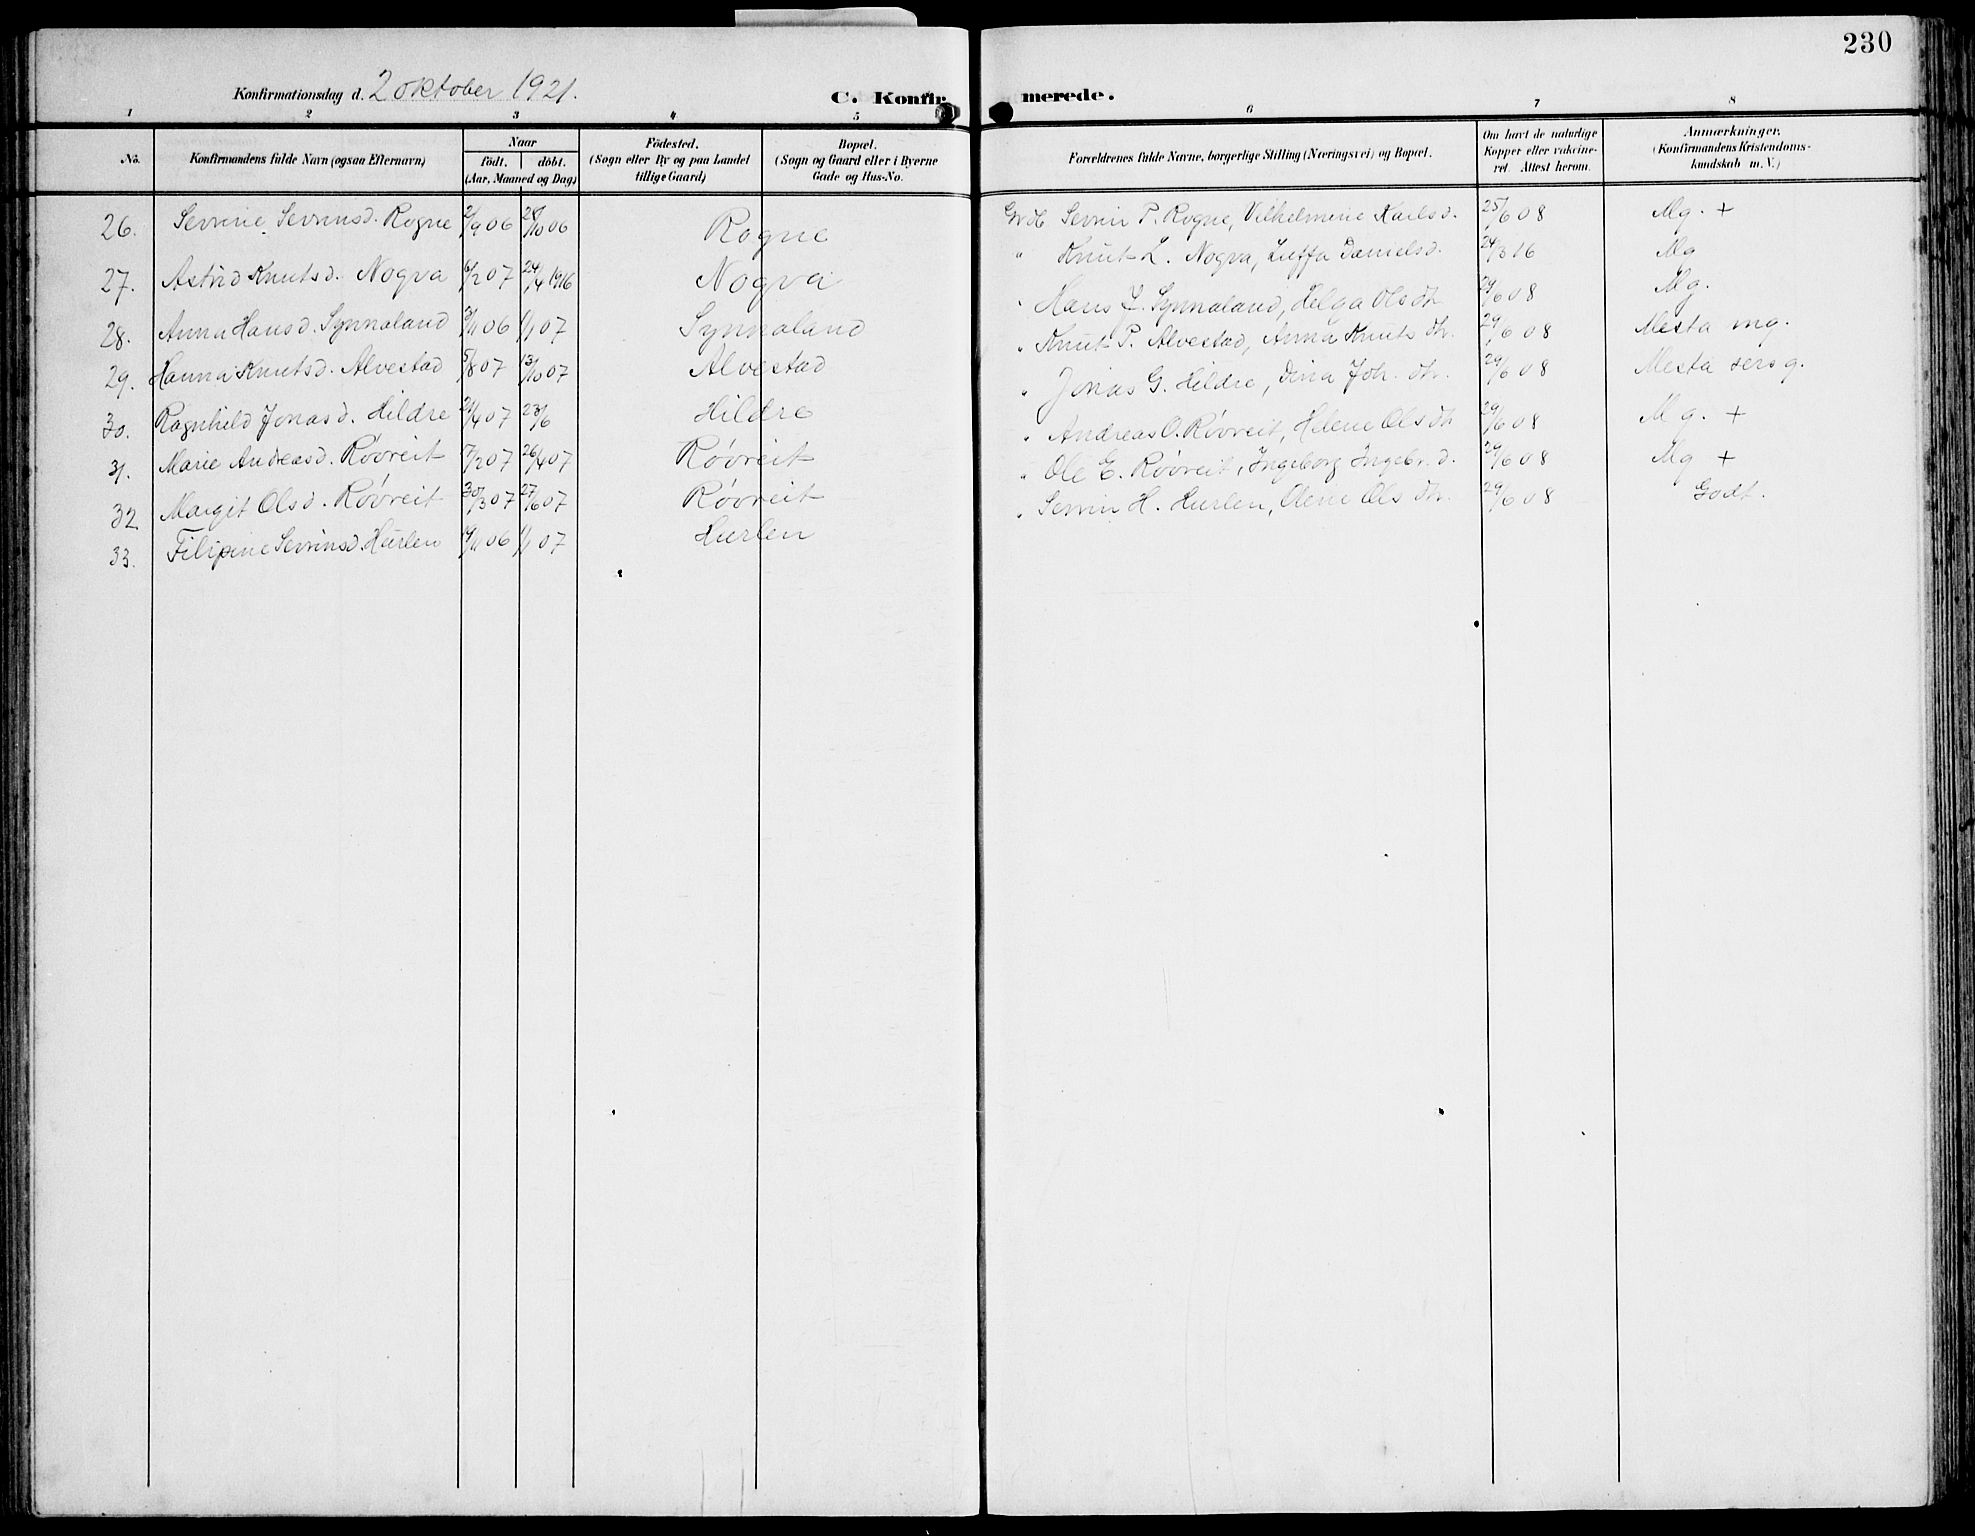 230
Konfirmationsdag d. 2 oktober 1921. C. Konfirmerede.
1 2 3 4 5 6 7 8
No. Konfirmandens fulde Navn (ogsaa Efternavn) Naar födt. döbt. (Aar, Maaned og Dag) Födested. (Sogn eller By og paa Landet tillige Gaard) Bopæl. (Sogn og Gaard eller i Byerne Gade og Hus-No. Forældrenes fulde Navne, borgerlige Stilling (Næringsvei) og Bopæl. Om havt de naturlige Kopper eller vakcineret. Attest herom. Anmærkninger. (Konfirmandens Kristendomskundskab m. V.)
26. Sevrine Sevrinsd. Rogne 2/9 06 28/10 06 Rogne Grdb Sevrin P. Rogne, Vilhelmine Karlsd. 25/6 08 Mg. +
27. Astrid Knutsd. Nogva 6/2 07 24/4 1916 Nogva " Knut L. Nogva, Luffa Danielsd. 24/3 16 Mg
28. Anna Hansd. Synnaland 3/11 06 1/1 07 Synnaland " Hans J. Synnaland, Helga Ols dtr 29/6 08 Mg.
29. Hanna Knutsd. Alvestad 5/8 07 13/10 07 Alvestad " Knut P. Alvestad, Anna Knuts dtr. 29/6 08 Mesta mg.
30. Ragnhild Jonasd. Hildre 21/4 07 23/6 Hildre " Jonas G. Hildre, Dina Joh. dtr. 29/6 08 Mesta sers g.
31. Marie Andreasd. Røvreit 17/2 07 26/4 07 Røvreit " Andreas O. Røvreit, Helene Ols dtr 29/6 08 Mg. +
32. Margit Olsd. Røvreit 30/3 07 27/6 07 Røvreit " Ole E. Røvreit, Ingeborg Ingebr. d. 29/6 08 Mg +
33. Filipine Sevrinsd. Hurlen 19/11 06 1/1 07 Hurlen " Sevrin H. Hurlen, Olene Ols dtr. 29/6 08 Godt.